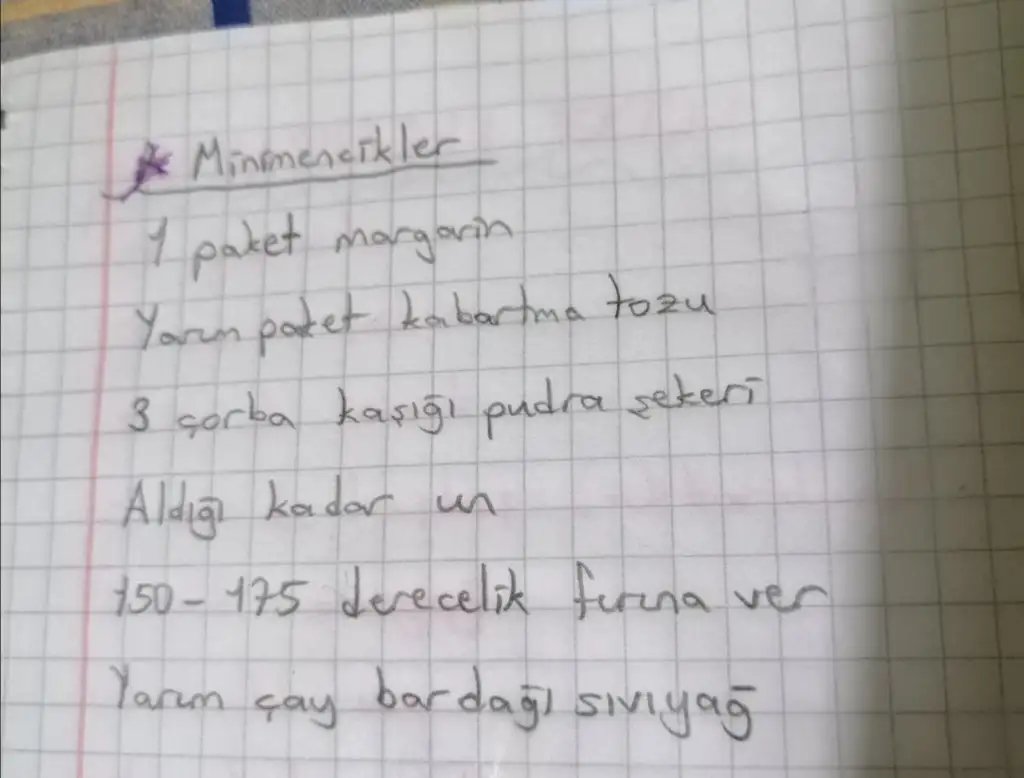 ★ Minimencikler
1 paket margarin
Yarım paket kabartma tozu
3 çorba kaşığı pudra şekeri
Aldığı kadar un
150-175 derecelik fırına ver
Yarım çay bardağı sıvıyağ